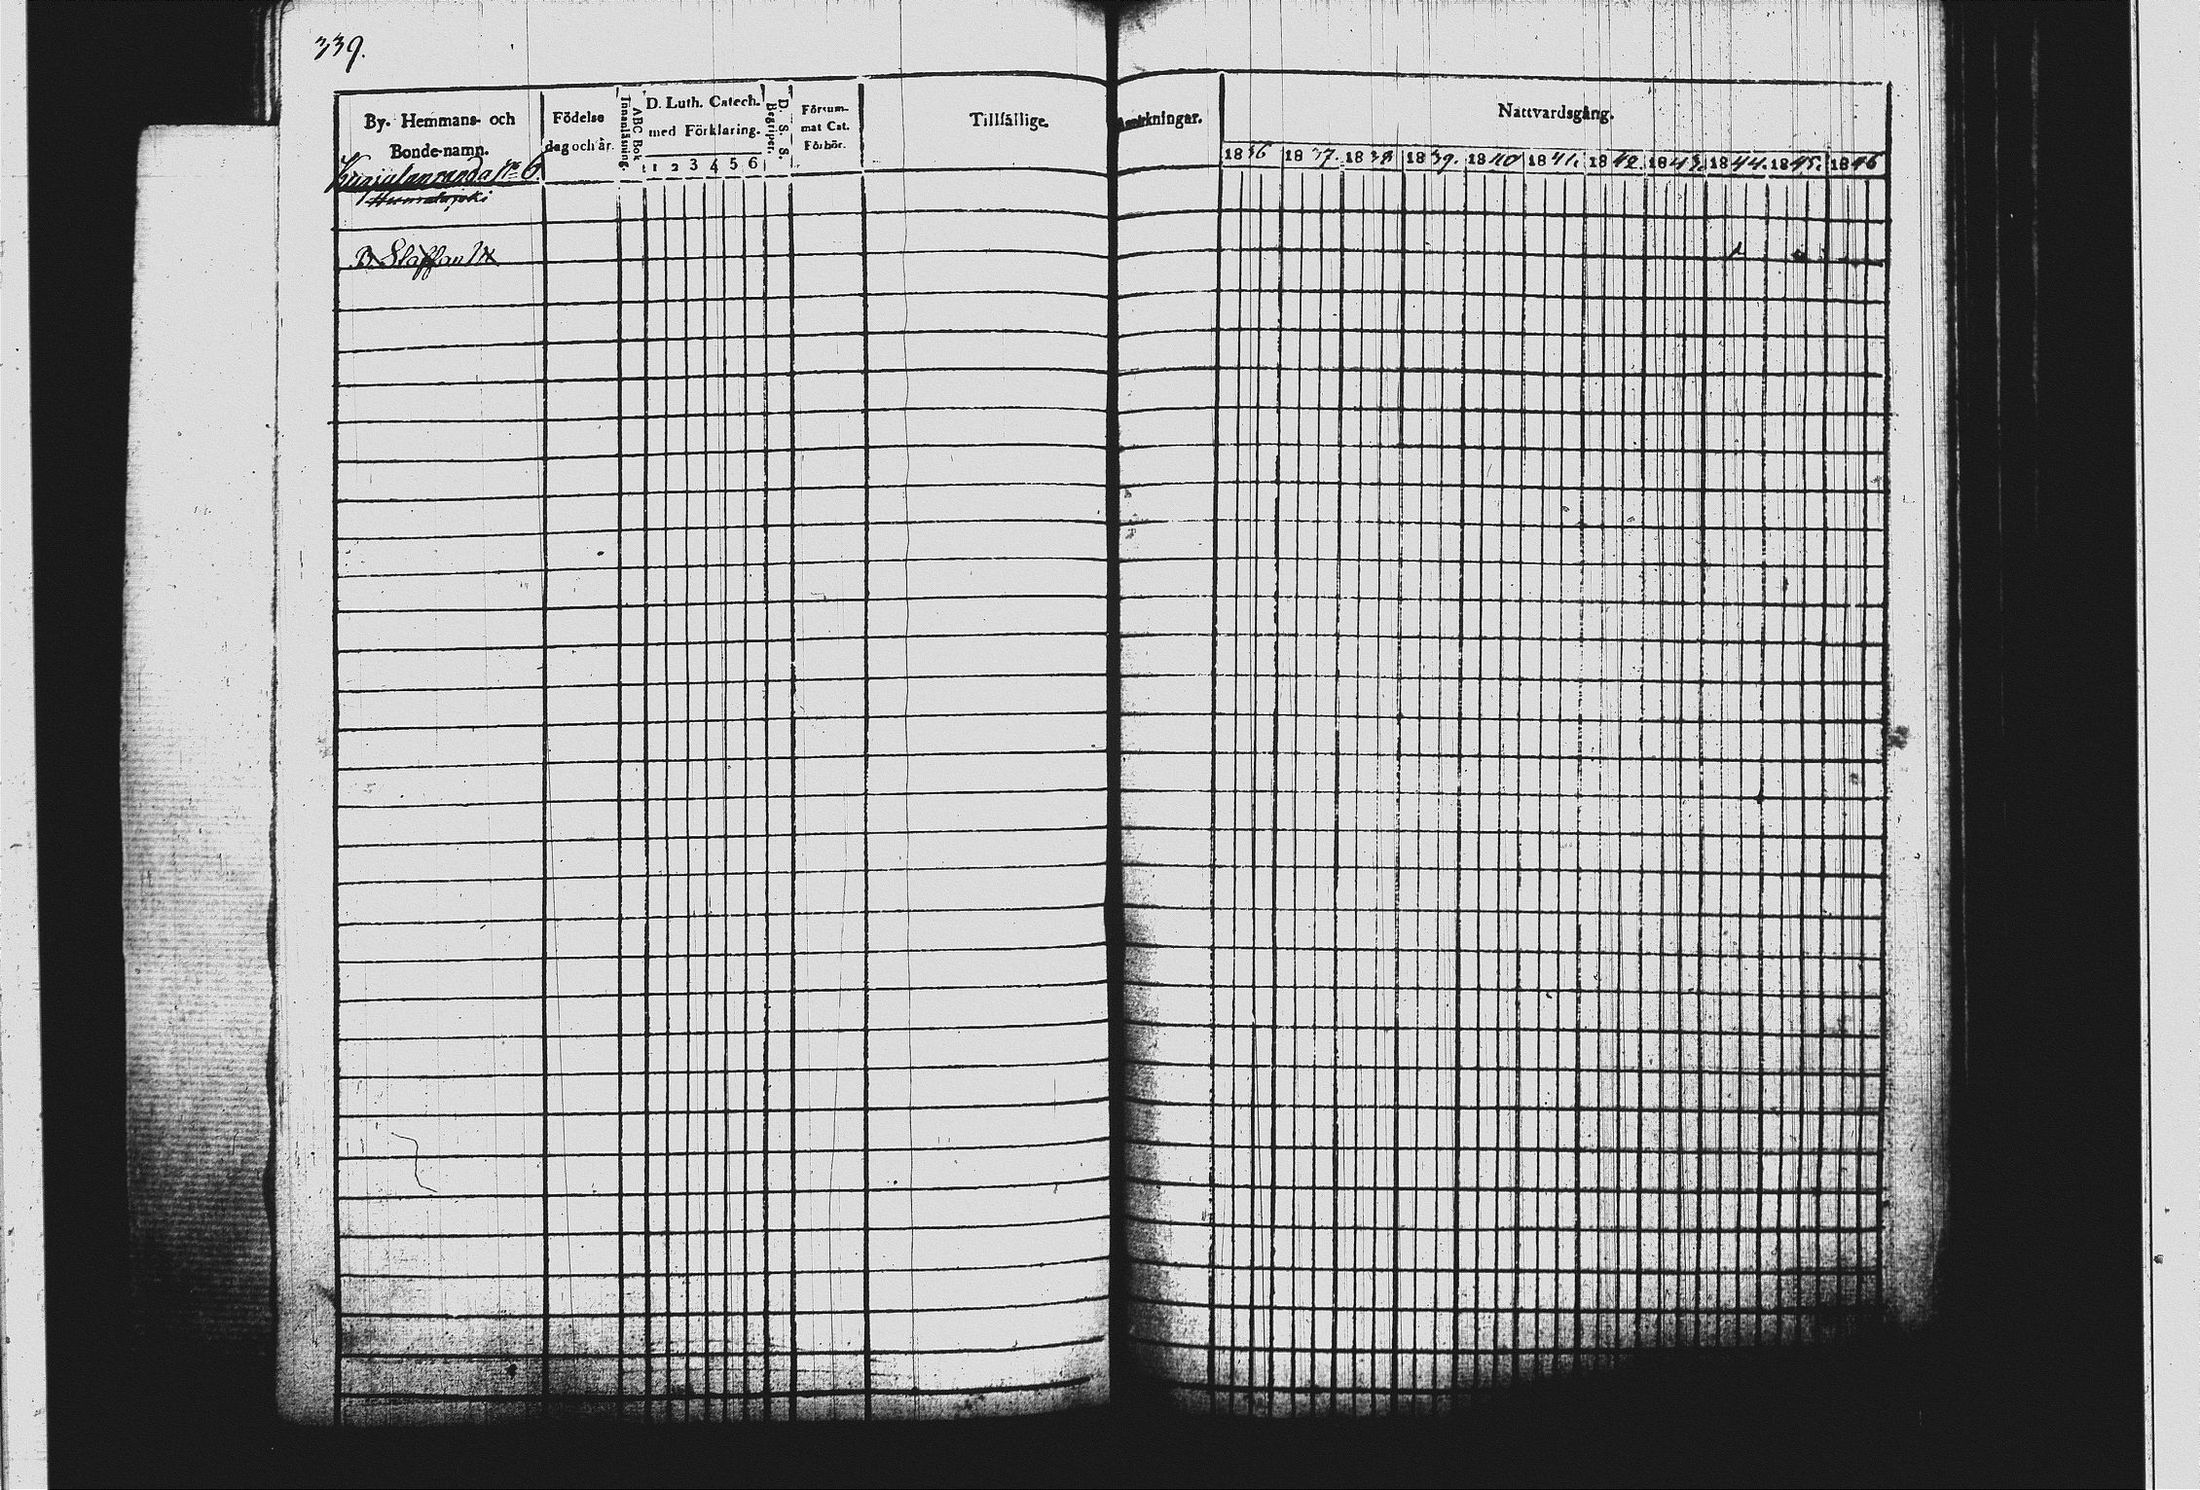 339.
By- Hemmans- och
Bonde-namn.
Födelse
dag och år.
Innanläsning.
ABC Bok
D. Luth. Catech.
med Förklaring.
1 2 3 4 5 6
Begriper.
D. S. S.
Försum-
mat Cat.
Förhör.
Tillfällige
Anmärkningar.
Nattvardsgång.
1836 1837. 1838 1839. 1840 1841. 1842 1843. 1844. 1845. 1846
N:o 6
B. Staffan